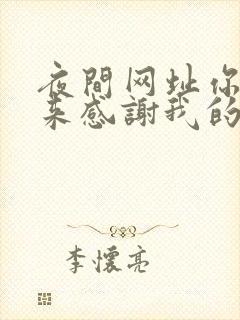 夜間网址你
来感謝我的
李懷亮